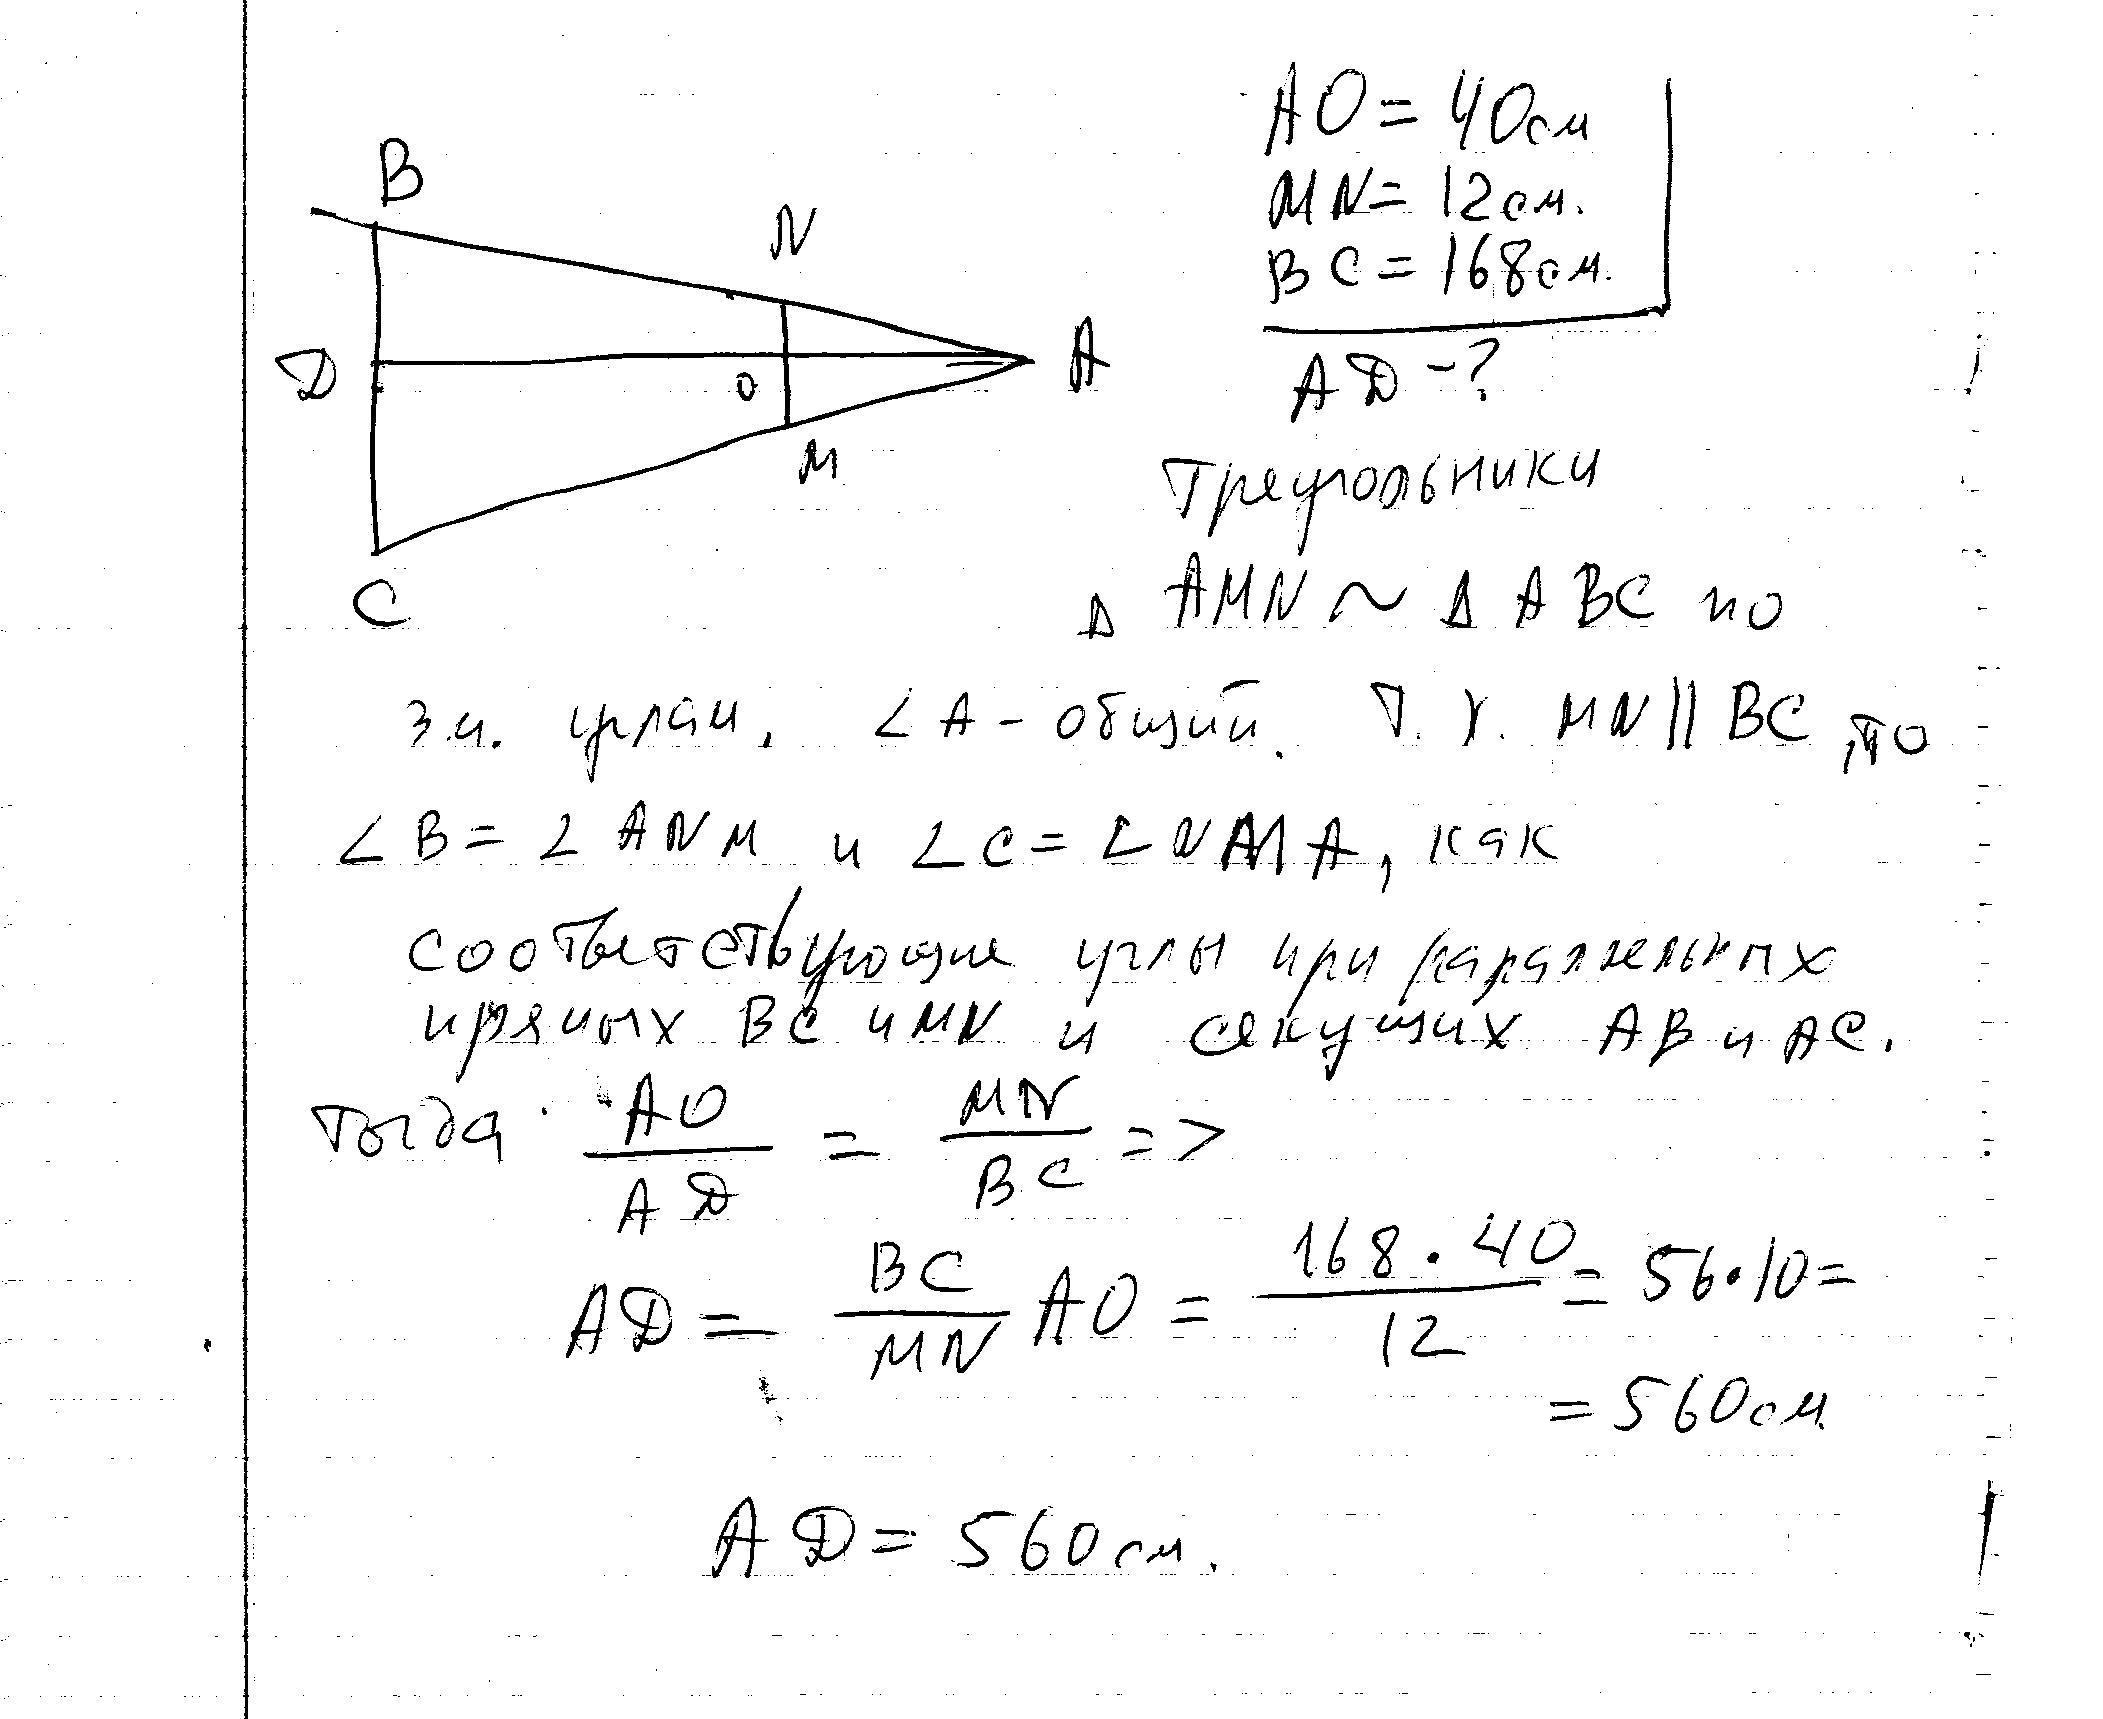 B
N
D
O
A
M
C
AO = 40см
MN = 12см.
BC = 168см.
AD - ?
Треугольники
Δ AMN ~ Δ ABC по
3м. углам. ∠A - общий. Т. к. MN || BC, то
∠B = ∠ANM и ∠C = ∠NMA, как
соответствующие углы при параллельных
прямых BC и MN и секущих AB и AC.
Тогда AO/AD = MN/BC =>
AD = BC/MN AO = 168·40/12 = 56·10 =
= 560см.
AD = 560см.